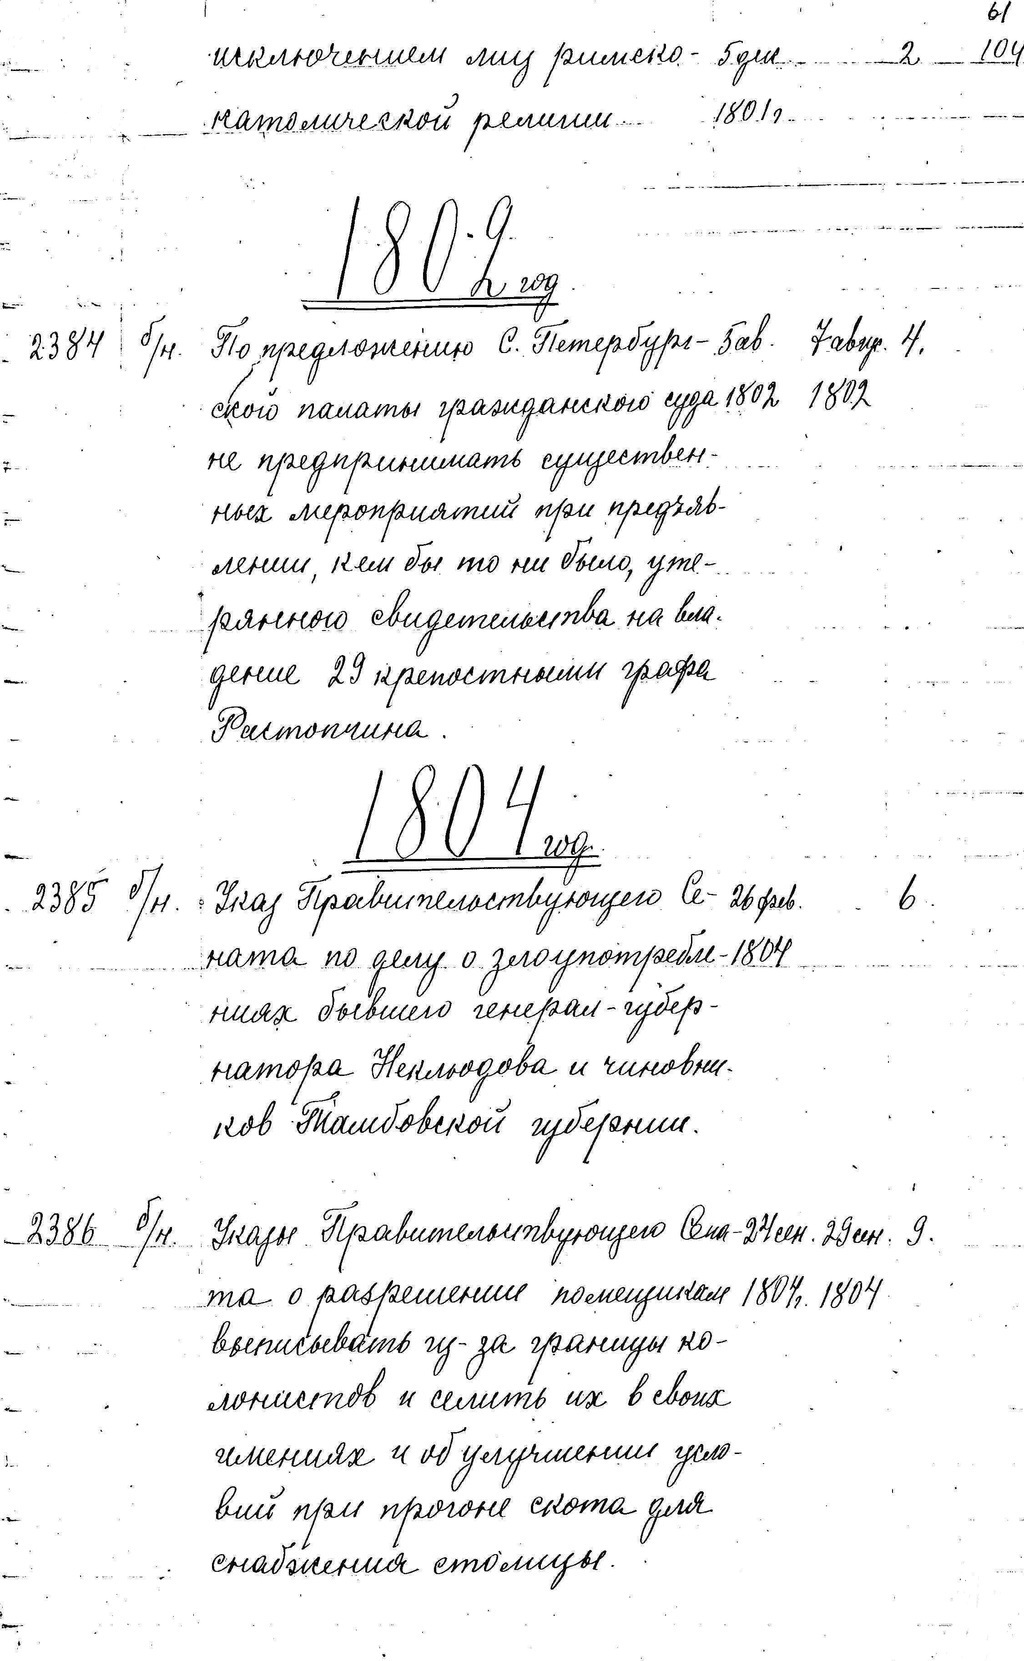 61
исключением лиц римско- 5 дек. 2 104
католической религии 1801 г.
1802 год
2384 б/н. По предложению С. Петербург- 5 ав. 7 авг. 4.
ской палаты гражданского суда 1802 1802
не предпринимать существен-
ных мероприятий при предъяв-
лении, кем бы то ни было, уте-
рянного свидетельства на вла-
дение 29 крепостными графа
Растопчина.
1804 год.
2385 б/н. Указ Правительствующего Се- 26 фев. 6.
ната по делу о злоупотребле- 1804
ниях бывшего генерал-губер-
натора Неклюдова и чиновни-
ков Тамбовской губернии.
2386 б/н. Указы Правительствующего Сена- 24 сен. 29 сен. 9.
та о разрешении помещикам 1804 г. 1804
выписывать из-за границы ко-
лонистов и селить их в своих
имениях и об улучшении усло-
вий при прогоне скота для
снабжения столицы.